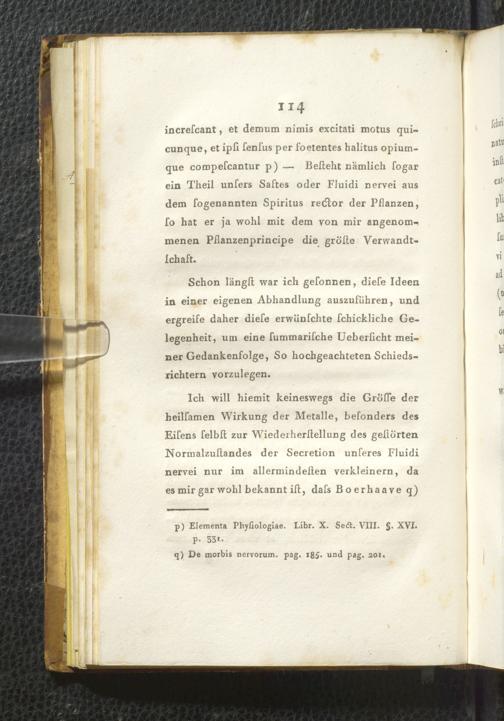 114
increſcant, et demum nimis excitati motus qui-
cunque, et ipſi ſenſus per foetentes halitus opium-
que compeſcantur p) — Beſteht nämlich ſogar
ein Theil unſers Saftes oder Fluidi nervei aus
dem ſogenannten Spiritus rector der Pflanzen,
ſo hat er ja wohl mit dem von mir angenom-
menen Pflanzenprincipe die gröſte Verwandt-
ſchaft.
Schon längſt war ich geſonnen, dieſe Ideen
in einer eigenen Abhandlung auszuführen, und
ergreife daher dieſe erwünſchte ſchickliche Ge-
legenheit, um eine ſummariſche Ueberſicht mei-
ner Gedankenfolge, So hochgeachteten Schieds-
richtern vorzulegen.
Ich will hiemit keineswegs die Gröſſe der
heilſamen Wirkung der Metalle, beſonders des
Eiſens ſelbſt zur Wiederherſtellung des geſtörten
Normalzuſtandes der Secretion unſeres Fluidi
nervei nur im allermindeſten verkleinern, da
es mir gar wohl bekannt iſt, daſs Boerhaave q)
p) Elementa Phyſiologiae. Libr. X. Sect. VIII. §. XVI.
p. 331.
q) De morbis nervorum. pag. 185. und pag. 201.